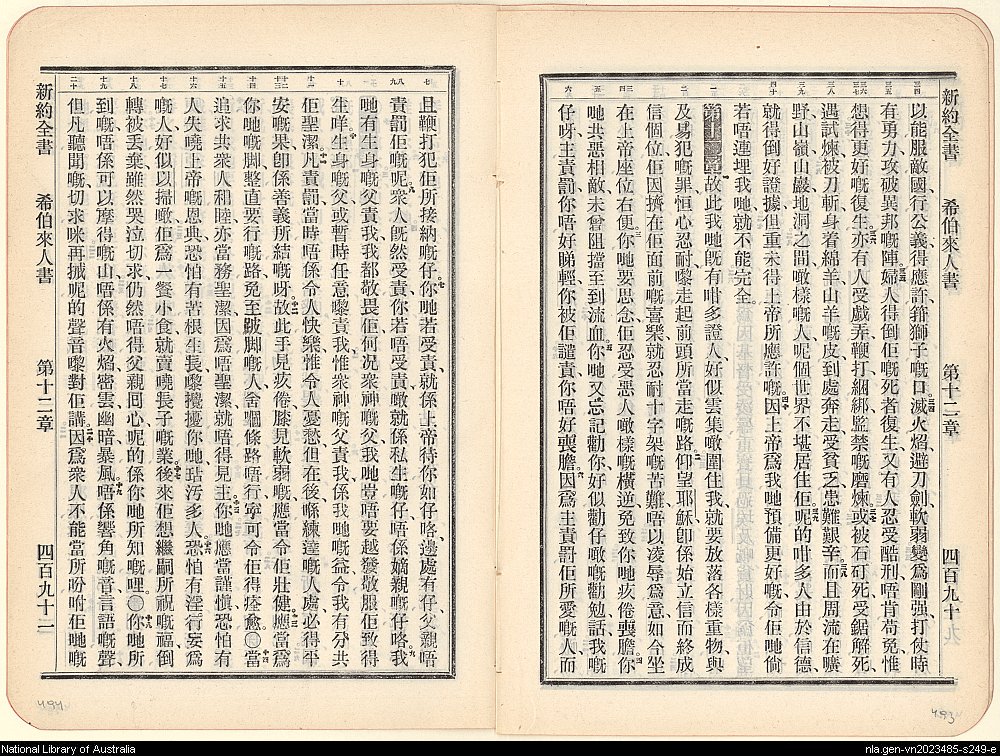 新約全書 希伯來人書 第十二章 四百九十九
以能服敵國、行公義、得應許、箝獅子嘅口、滅火焰、避刀劍、軟弱變爲剛强、打仗時
有勇力、攻破異邦嘅陣、婦人得倒佢嘅死者復生、又有人忍受酷刑、唔肯苟免、惟
想得更好嘅復生、亦有人受戲弄鞭打、綑綁監禁嘅磨煉、或被石矴死、受鋸解死、
遇試煉、被刀斬、身着綿羊山羊嘅皮、到處奔走、受貧乏患難艱辛、而且周流在曠
野山嶺山巖地洞之間、噉樣嘅人呢個世界不堪居住佢、呢的咁多人由於信德、
就得倒好證據、但重未得上帝所應許嘅、因上帝爲我哋預備更好嘅、令佢哋倘
若唔連埋我哋、就不能完全。
第十二章 故此我哋旣有咁多證人、好似雲集噉圍住我、就要放落各樣重物、與
及易犯嘅罪、恒心忍耐嚟走起前頭所當走嘅路、仰望耶穌、卽係始立信而終成
信個位、佢因擠在佢面前嘅喜樂、就忍耐十字架嘅苦難、唔以凌辱爲意、如今坐
在上帝座位右便、你哋要思念佢忍受惡人噉樣嘅橫逆、免致你哋疾倦喪膽、你
哋共惡相敵、未曾阻擋至到流血、你哋又忘記勸你、好似勸仔噉嘅勸勉話、我嘅
仔呀、主責罰你、唔好睇輕、你被佢譴責、你唔好喪膽、因爲主責罰佢所愛嘅人、而
且鞭打犯佢所接納嘅仔。你哋若受責、就係上帝待你如仔咯、邊處有仔、父親唔
責罰佢嘅呢、衆人旣然受責、你若唔受責噉、就係私生嘅仔、唔係嫡親嘅仔咯、我
哋有生身嘅父責我、我都敬畏佢、何況衆神嘅父、我哋豈唔要越發敬服佢、致得
生咩、生身嘅父、或暫時任意嚟責我、惟衆神嘅父責我、係我哋嘅益、令我有分共
佢聖潔、凡責罰當時唔係令人快樂、惟令人憂愁、但在後嚟練達嘅人、處必得平
安嘅果、卽係善義所結嘅呀。故此手見疚倦、膝見軟弱嘅、應當令佢壯健、應當爲
你哋嘅脚、整直要行嘅路、免至跛脚嘅人舍嗰條路唔行、寧可令佢得痊愈。〇當
追求共衆人相睦、亦當務聖潔、因爲唔聖潔、就唔得見主、你哋應當謹愼、恐怕有
人失嘵上帝嘅恩典、恐怕有苦根生長嚟攪擾你哋、玷污多人、恐怕有淫行妄爲
嘅人、好似以掃噉、佢爲一餐小食、就賣嘵長子嘅業、後來佢想繼嗣所祝嘅福、倒
轉被丟棄、雖然哭泣切求、仍然唔得父親囘心、呢的係你哋所知嘅哩。〇你哋所
到嘅、唔係可以摩得嘅山、唔係有火焰密雲幽暗暴風、唔係響角嘅音、言語嘅聲、
但凡聽聞嘅、切求咪再搣呢的聲音嚟對佢講、因爲衆人不能當所吩咐佢哋嘅
新約全書 希伯來人書 第十二章 四百九十二
493
494
National Library of Australia
nla.gen-vn2023485-s249-e